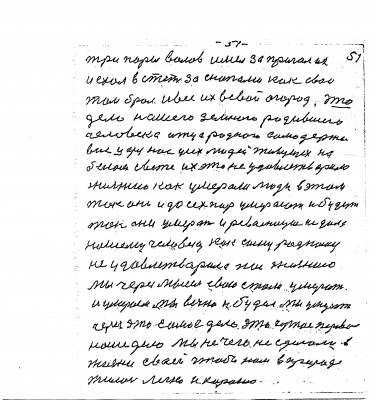 -51-
51
три пары валов имел запригал их
и ехал в степ за снапами как свои
там брал и вез их в свой огород. это
дело нашего земного родившего
человека отца родного самодержа
вие и цар нас усех людей живущих на
белом свете их это не удовлетварило
жизнию как умерали люди в этом
так они и до сех пор умерают и будут
так они умерат и революция не дала
нашему человеку как сыну родному
не удовлетварила на жизнию
мы через мысел свою стали умерат.
и умераем мы вечно и будем мы умерат
через это самое дело, это чужое первое
наше дело мы нечего не сделали в
жизни своей чтобы нам в природе
жилос легко и харашо.